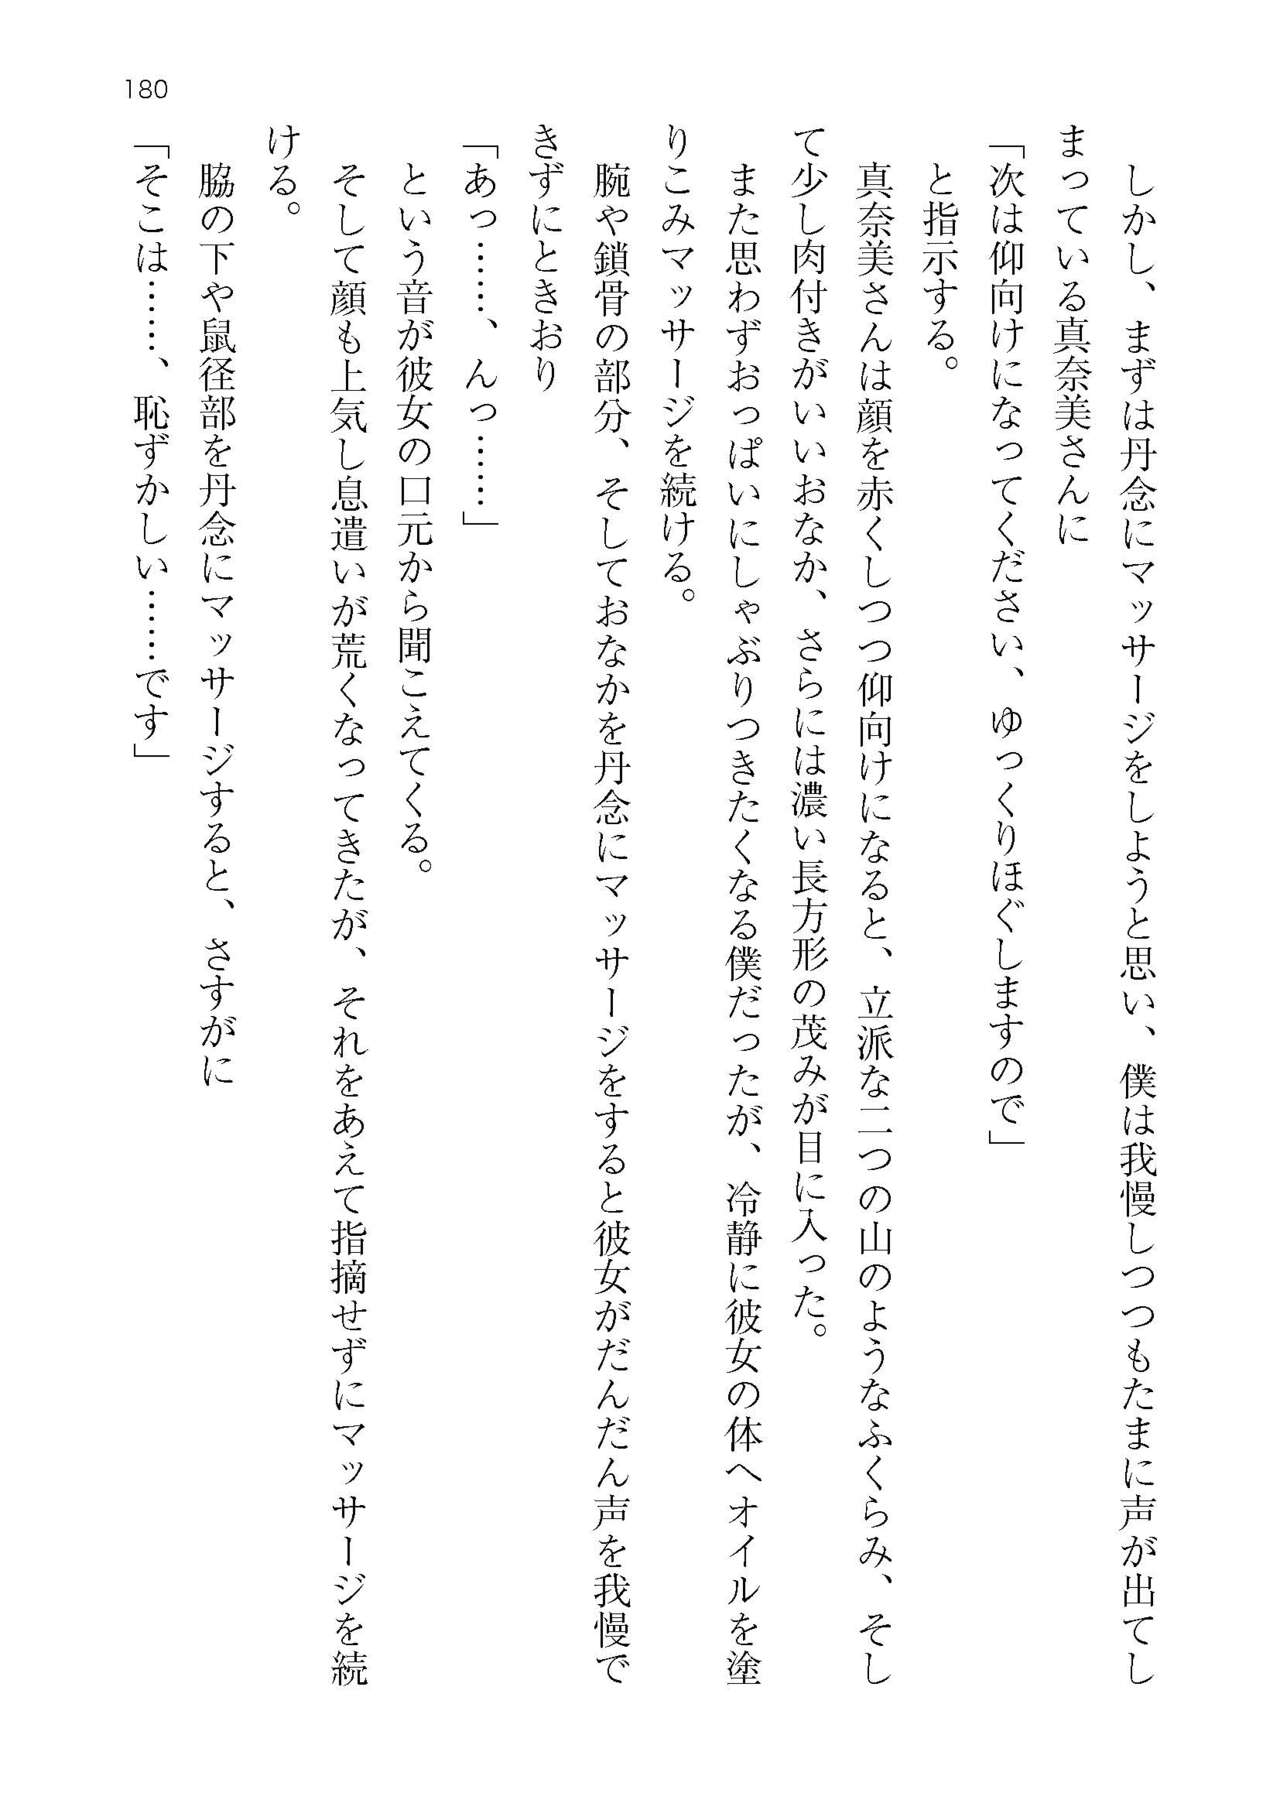 180
しかし、まずは丹念にマッサージをしようと思い、僕は我慢しつつもたまに声が出てし
まっている真奈美さんに
「次は仰向けになってください、ゆっくりほぐしますので」
と指示する。
真奈美さんは顔を赤くしつつ仰向けになると、立派な二つの山のようなふくらみ、そし
て少し肉付きがいいおなか、さらには濃い長方形の茂みが目に入った。
また思わずおっぱいにしゃぶりつきたくなる僕だったが、冷静に彼女の体へオイルを塗
りこみマッサージを続ける。
腕や鎖骨の部分、そしておなかを丹念にマッサージをすると彼女がだんだん声を我慢で
きずにときおり
「あっ……、んっ……」
という音が彼女の口元から聞こえてくる。
そして顔も上気し息遣いが荒くなってきたが、それをあえて指摘せずにマッサージを続
ける。
脇の下や鼠径部を丹念にマッサージすると、さすがに
「そこは……、恥ずかしい……です」